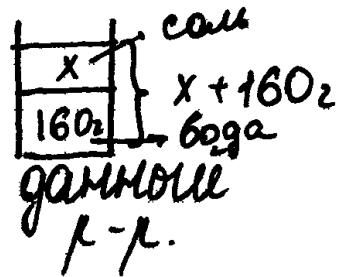 соль
x
x + 160г
160г
вода
данный
р-р.